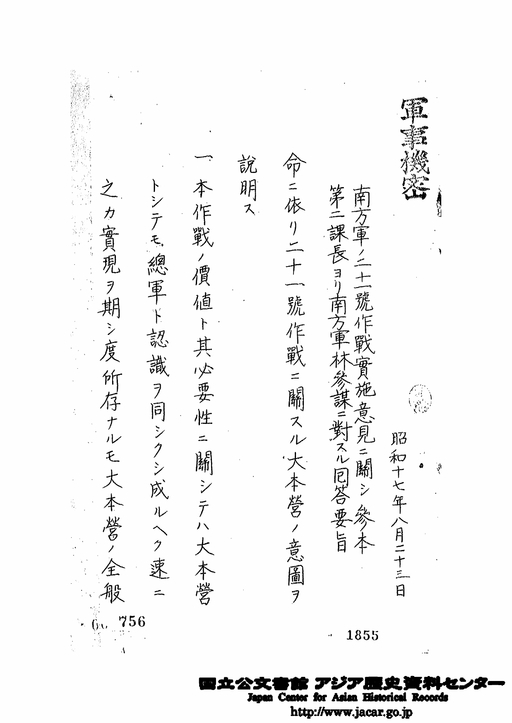 軍事機密
昭和十七年八月二十三日
南方軍ノ二十一號作戰實施意見ニ關シ參本
第二課長ヨリ南方軍林參謀ニ對スル回答要旨
命ニ依リ二十一號作戰ニ關スル大本營ノ意圖ヲ
說明ス
一、本作戰ノ價値ト其必要性ニ關シテハ大本營
トシテモ總軍ト認識ヲ同シクシ成ルヘク速ニ
之カ實現ヲ期シ度所存ナルモ大本營ノ全般
756
1855
国立公文書館 アジア歴史資料センター
Japan Center for Asian Historical Records
http://www.jacar.go.jp